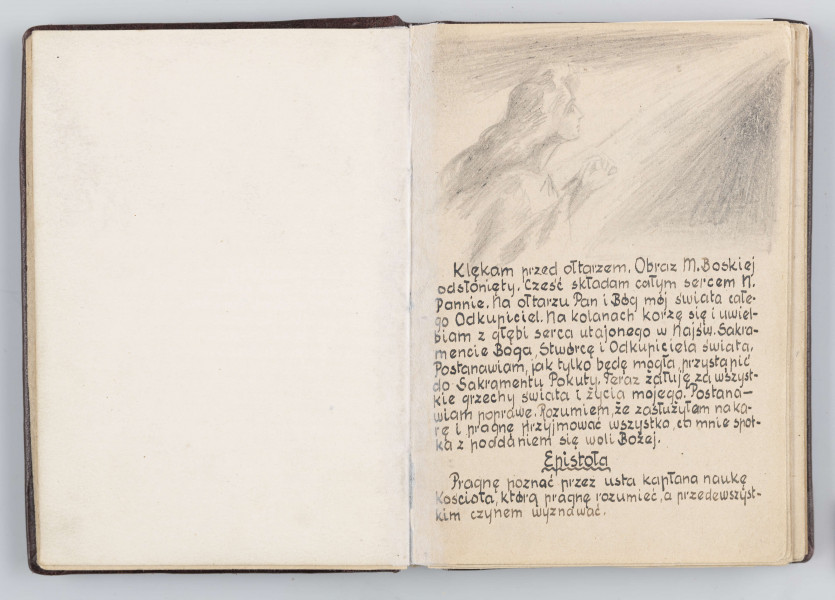 Klękam przed ołtarzem. Obraz M. Boskiej
odsłonięty. Cześć składam całym sercem N.
Pannie. Na ołtarzu Pan i Bóg mój świata całe-
go Odkupiciel. Na kolanach korzę się i uwiel-
biam z głębi serca utajonego w Najśw. Sakra-
mencie Boga, Stwórcę i Odkupiciela świata.
Postanawiam, jak tylko będę mogła przystąpić
do Sakramentu Pokuty. Teraz żałuję za wszyst-
kie grzechy świata i życia mojego. Postana-
wiam poprawę. Rozumiem, że zasłużyłam na ka-
rę i pragnę przyjmować wszystko, co mnie spot-
ka z poddaniem się woli Bożej.
Epistoła
Pragnę poznać przez usta kapłana naukę
Kościoła, którą pragnę rozumieć, a przedewszyst-
kim czynem wyznawać.